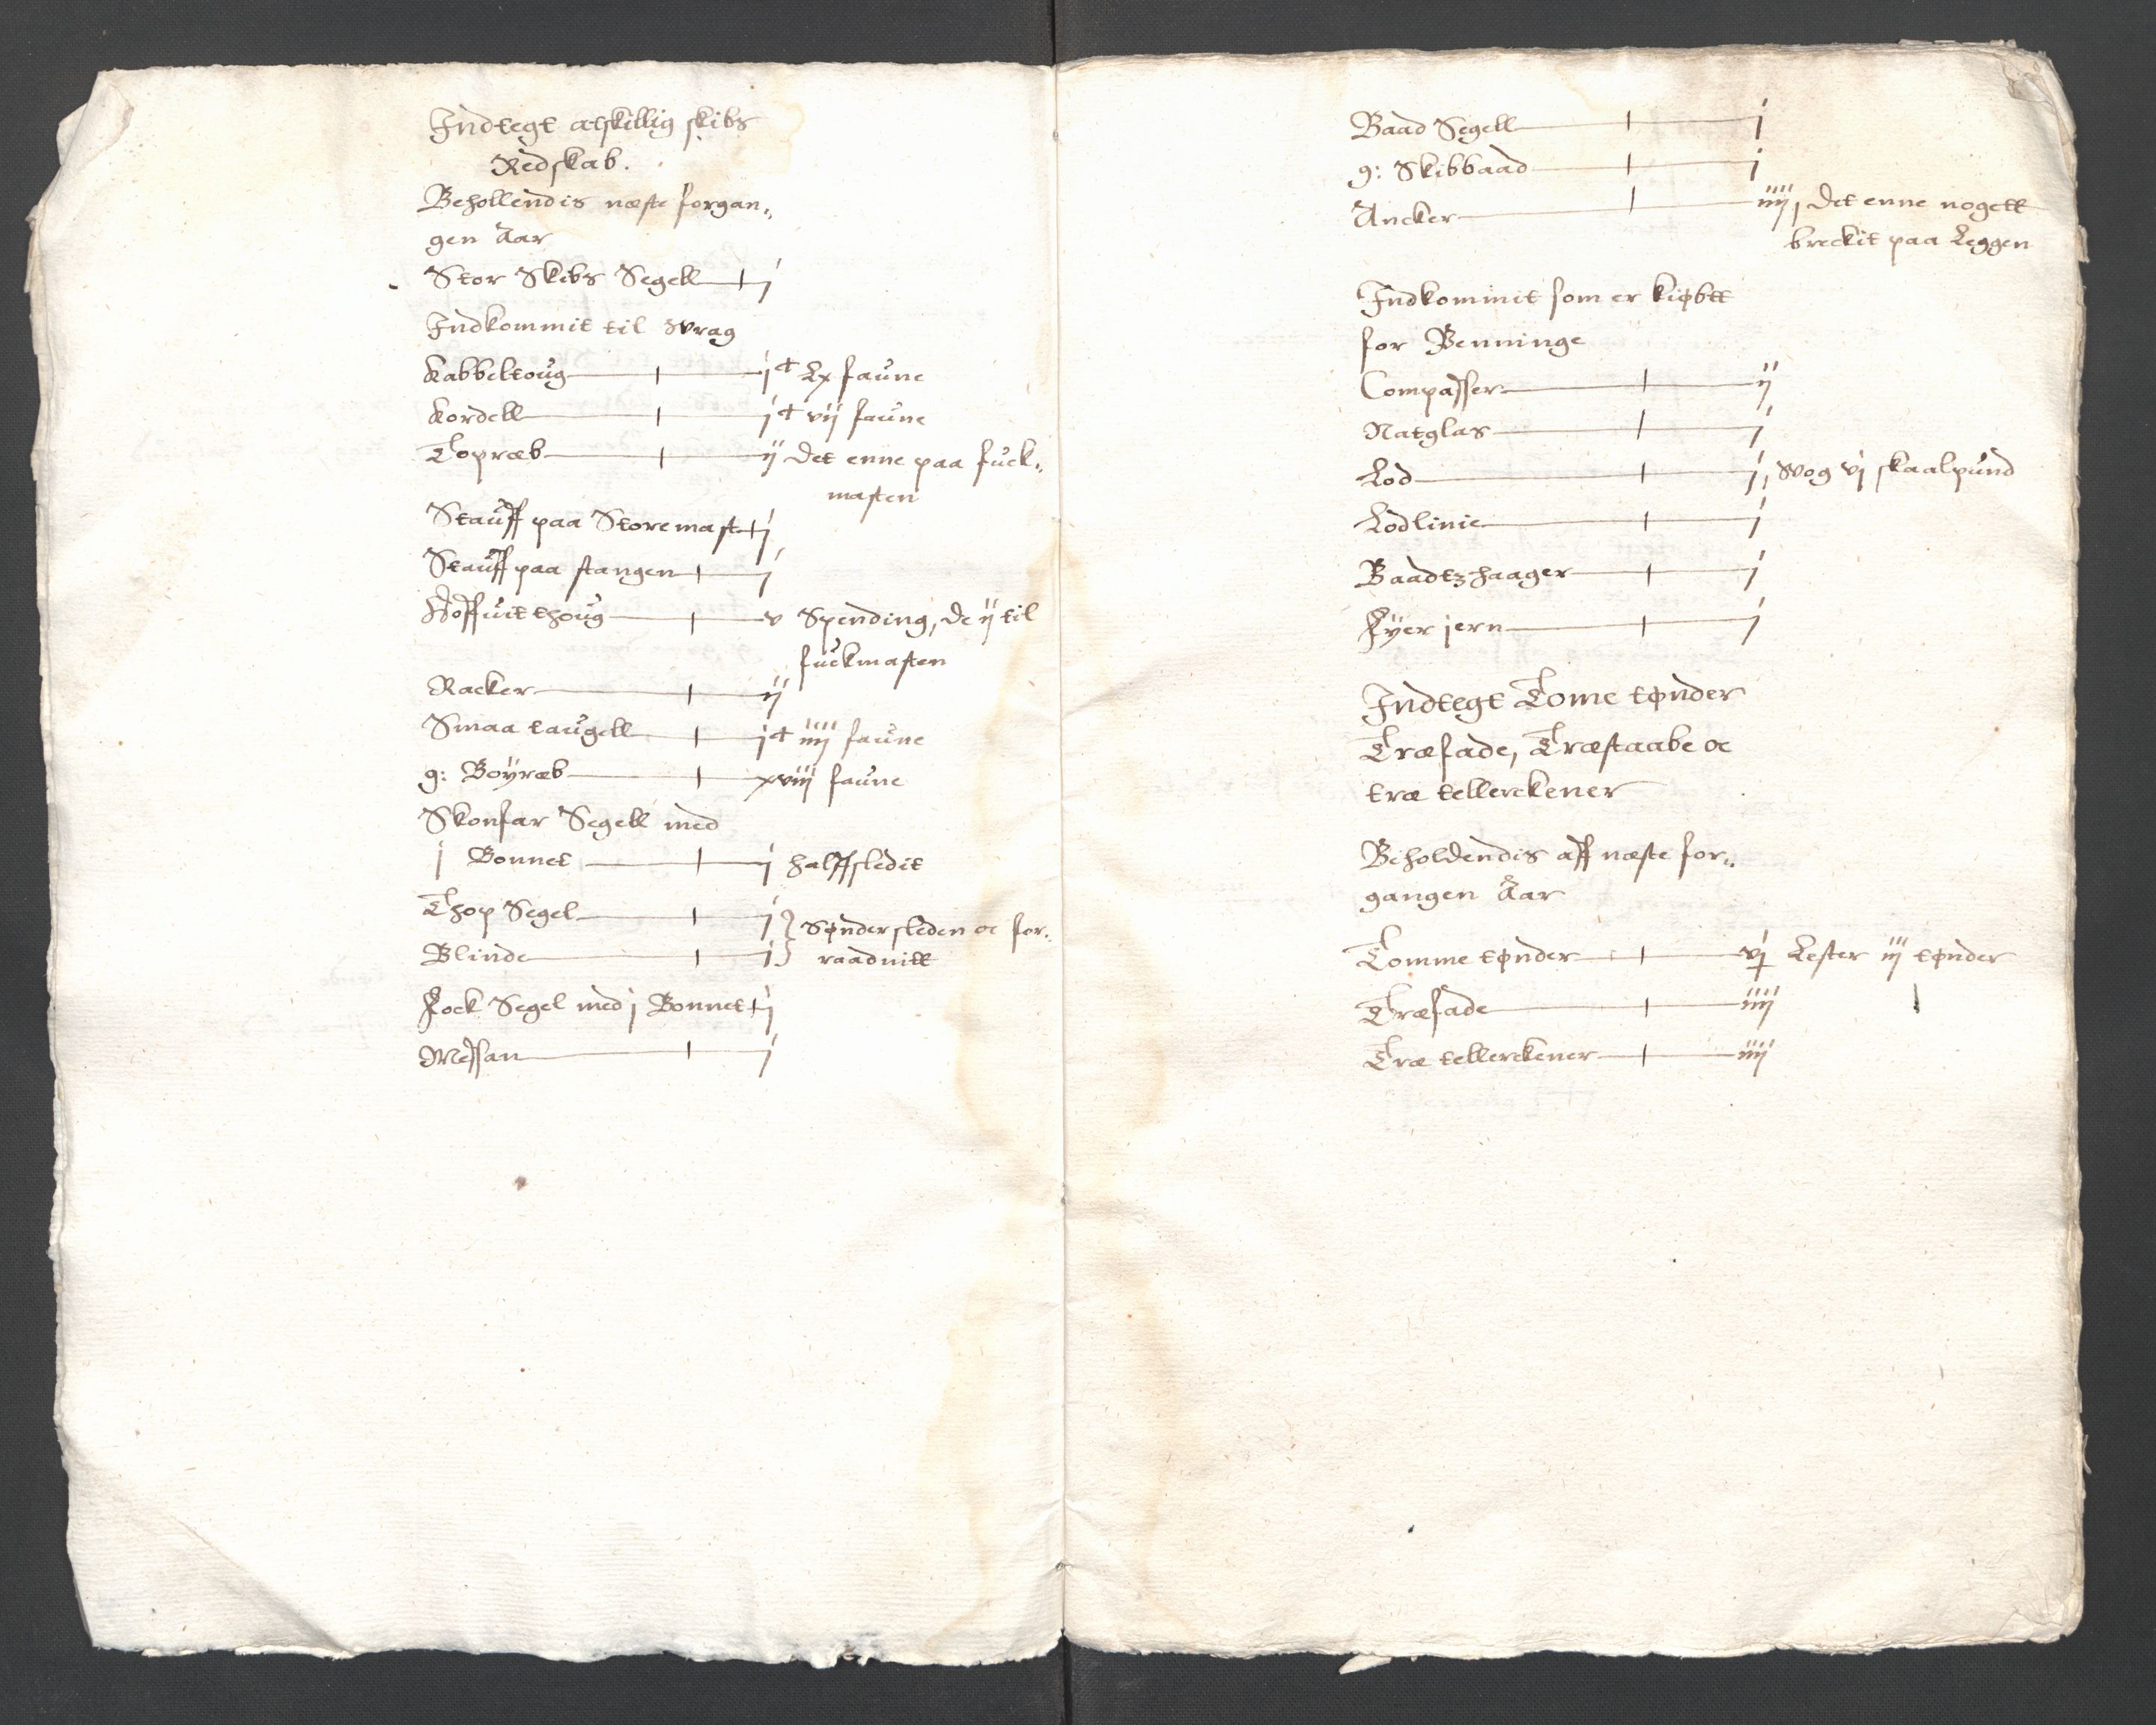 Indtegt atskillig skibs
Redskab.
Behollendis næste forgan„
gen Aar
Stor Skibs Segell j
Indkommit til wrag
Kabbeltoug jc Lx faune
Kordell jc vij faune
Topræb ij det enne paa fuck„
masten
Stauff paa Storemast j
Stauff paa stangen j
Hoffuitthoug v Spending, de ij til
fuckmasten
Racker ij
Smaa taugell jc iiij faune
g: Boÿræb xviij faune
Skonfar Segell med
j Bonnet j halffsledit
Thop Segel j } Søndersleden oc for„
Blinde j } raadnitt
Fock Segel med j Bonnet j
Messan j
Baad Segell j
g: Skibbaad j
Ancker iiij, det enne nogett
breckit paa Leggen
Indkommit som er kiøbtt
for Penninge
Compasser ij
Natglas j
Lod j, wog vj skaalpund
Lodlinie j
Baadtzhaager j
Fÿer jern j
Indtegt Tome tønder
Træfade, Træstaabe oc
træ tellerckener
Beholdendis aff næste for„
gangen Aar
Tomme tønder vj Lester iij tønder
Træfade iiij
Træ tellerckener iiij